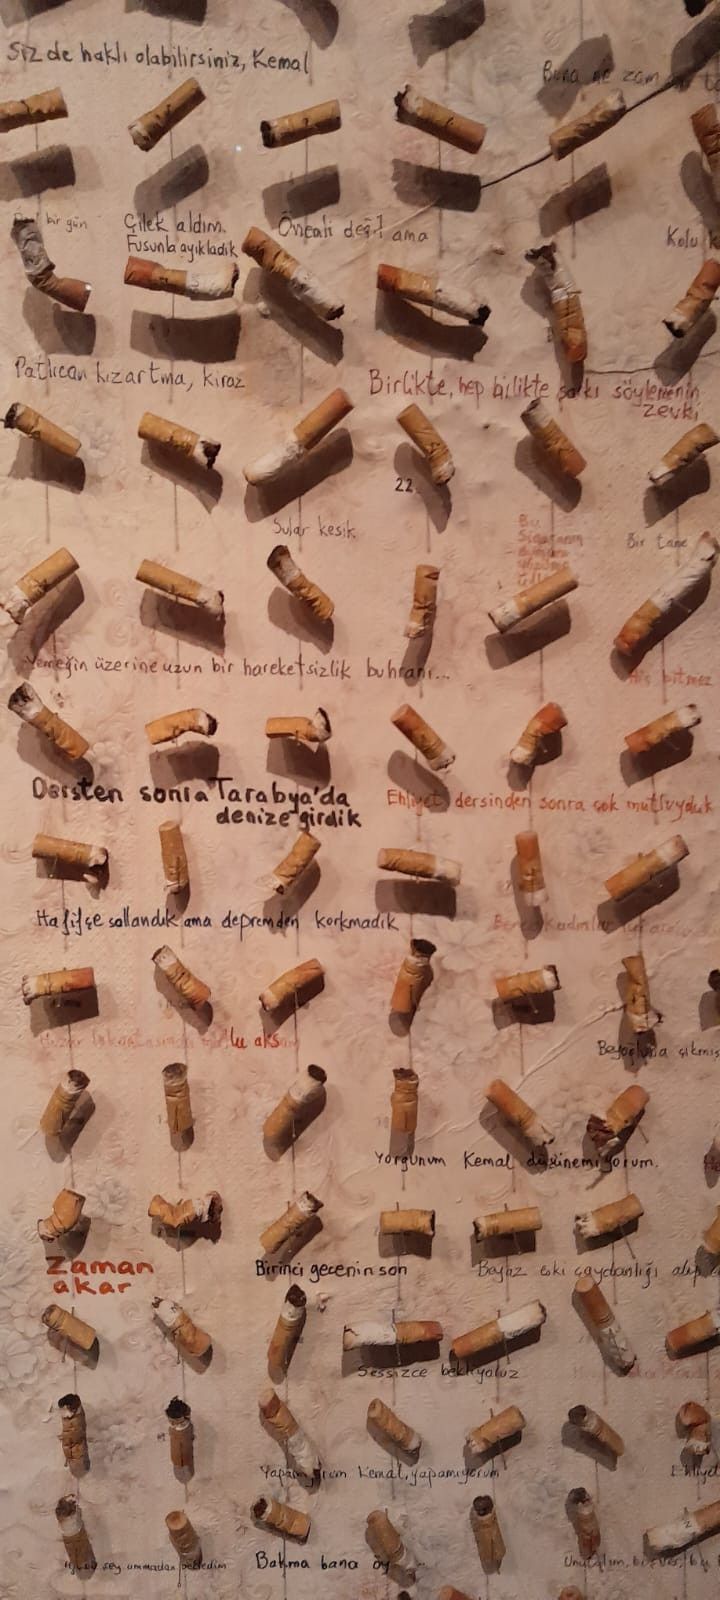 Siz de haklı olabilirsiniz, Kemal
Buna ne zam
bir gün
Çilek aldım.
Fusunla ayıkladık
Önemli değil ama
Kolu
Patlıcan kızartma, kiraz
Birlikte, hep bilikte şarkı söylemenin
zevki
22
Sular kesik
Bu
Sigaranın
Bir tane
Yemeğin üzerine uzun bir hareketsizlik buhranı...
Hiç bitmez
Dersten sonra Tarabya'da
denize girdik
Ehliyet dersinden sonra çok mutluyduk
Hafifçe sallandık ama depremden korkmadık
Huzur mutlu akşam
Beyoğluna çıkmış
Yorgunum Kemal düşünemiyorum.
Zaman
akar
Birinci gecenin son
Beyaz eski çaydanlığı alıp
Sessizce bekliyoruz
Yapamıyorum Kemal, yapamıyorum
Ehliyet
şey ummadan bekledim
Bakma bana öy
Unutalım,